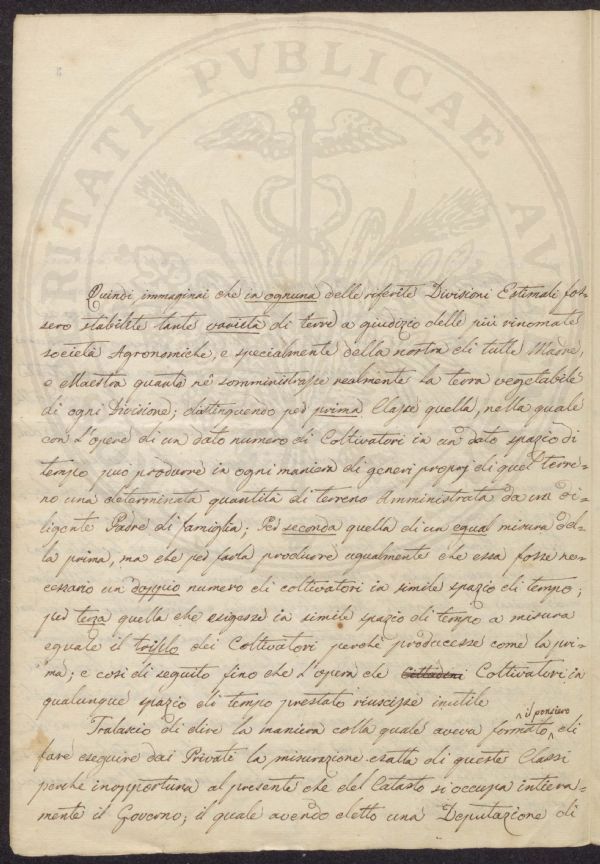 PROSPERITATI PVBLICAE AV
Quindi immaginai che in ognuna delle riferite Divisioni Estimali fos-
sero stabilite tante varietà di terre a giudizio delle più rinomate
società Agronomiche, e specialmente della nostra di tutte Madre,
e Maestra quante nè somministrasse realmente la teora vegetabile
di ogni Divisione; distinguendo per prima Classe quella, nella quale
con l'opere di un dato numero di Coltivatori in un dato spazio di
tempo può produrre in ogni maniera di generi proprj di quel terre-
no una determinata quantità di terreno Amministrata da un di-
ligente Padre di famiglia; Per seconda quella di un egual misura del-
la prima, ma che per farla produrre ugualmente che essa fosse ne-
cessario un doppio numero di coltivatori in simile spazio di tempo;
per terza quella che esigesse in simile spazio di tempo a misura
eguale il triplo dei Coltivatori perchè producesse come la pri-
ma; e così di seguito fino che l'opera de Cittadini Coltivatori in
qualunque spazio di tempo prestato riuscisse inutile
Tralascio di dire la maniera colla quale aveva formato il pensiero di
fare eseguire dai Privati la misurazione esatta di queste Classi
perchè inopportuna al presente che del Catasto si occupa intiera-
mente il Governo; il quale avendo eletto una Deputazione di